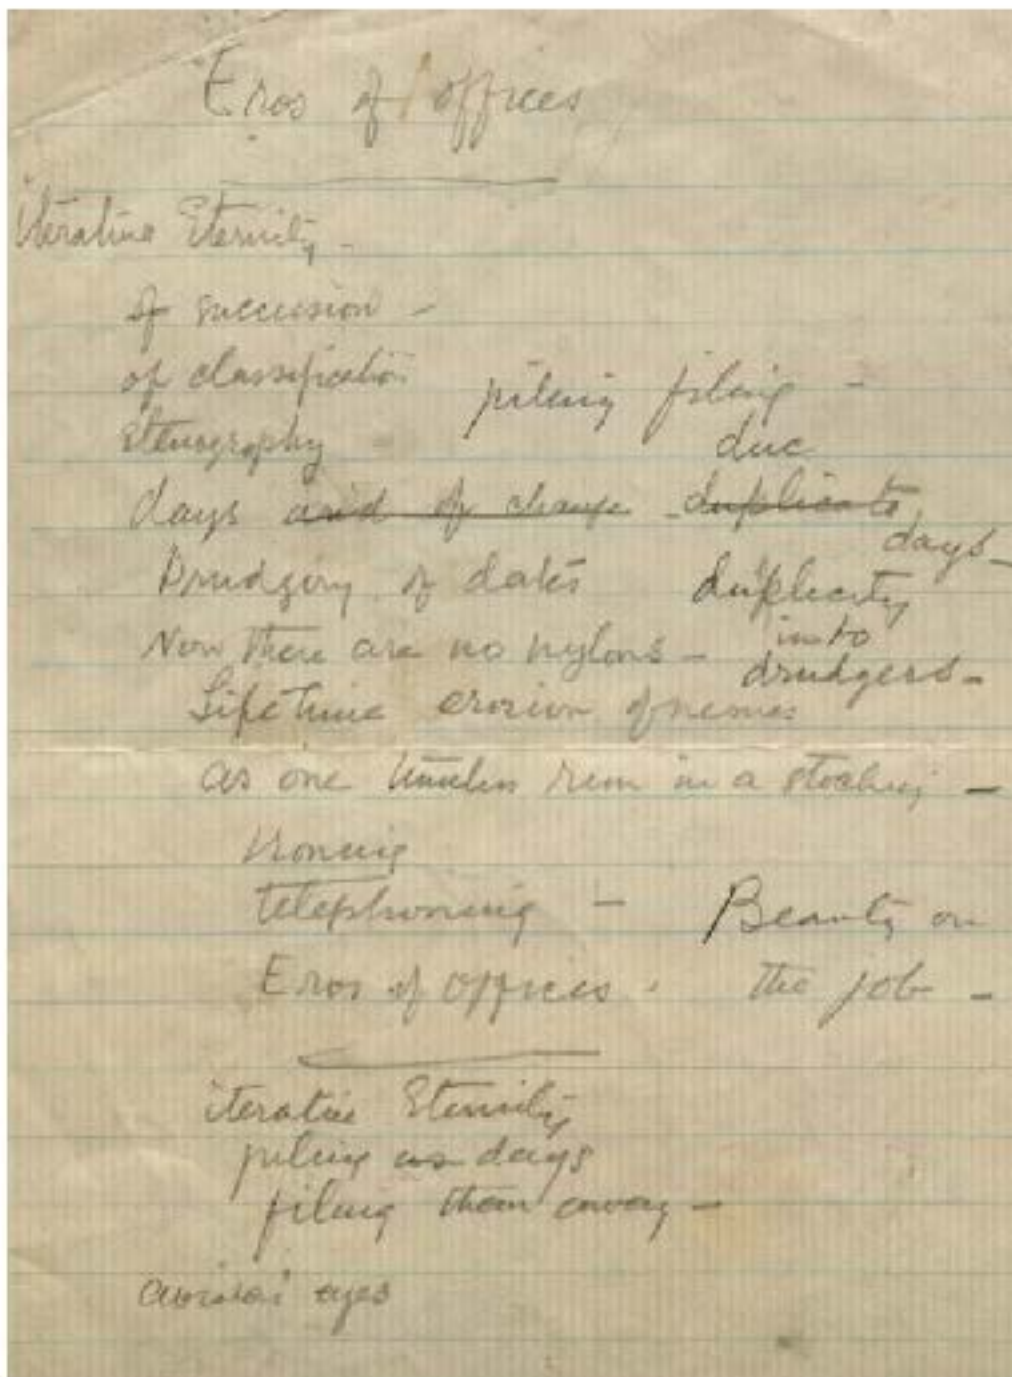 Eros of offices
iterative Eternity -
of succession -
of classification
piling filing -
stenography -
due
days and of change duplicate
days -
Drudgery of dates
duplicity
Now there are no nylons -
into
drudgers -
Lifetime erosion of nemes
as one run in a stocking -
Ironing
telephoning -
Beauty on
Eros of offices .
the job -
iterative Eternity
piling as days
filing them away -
eyes